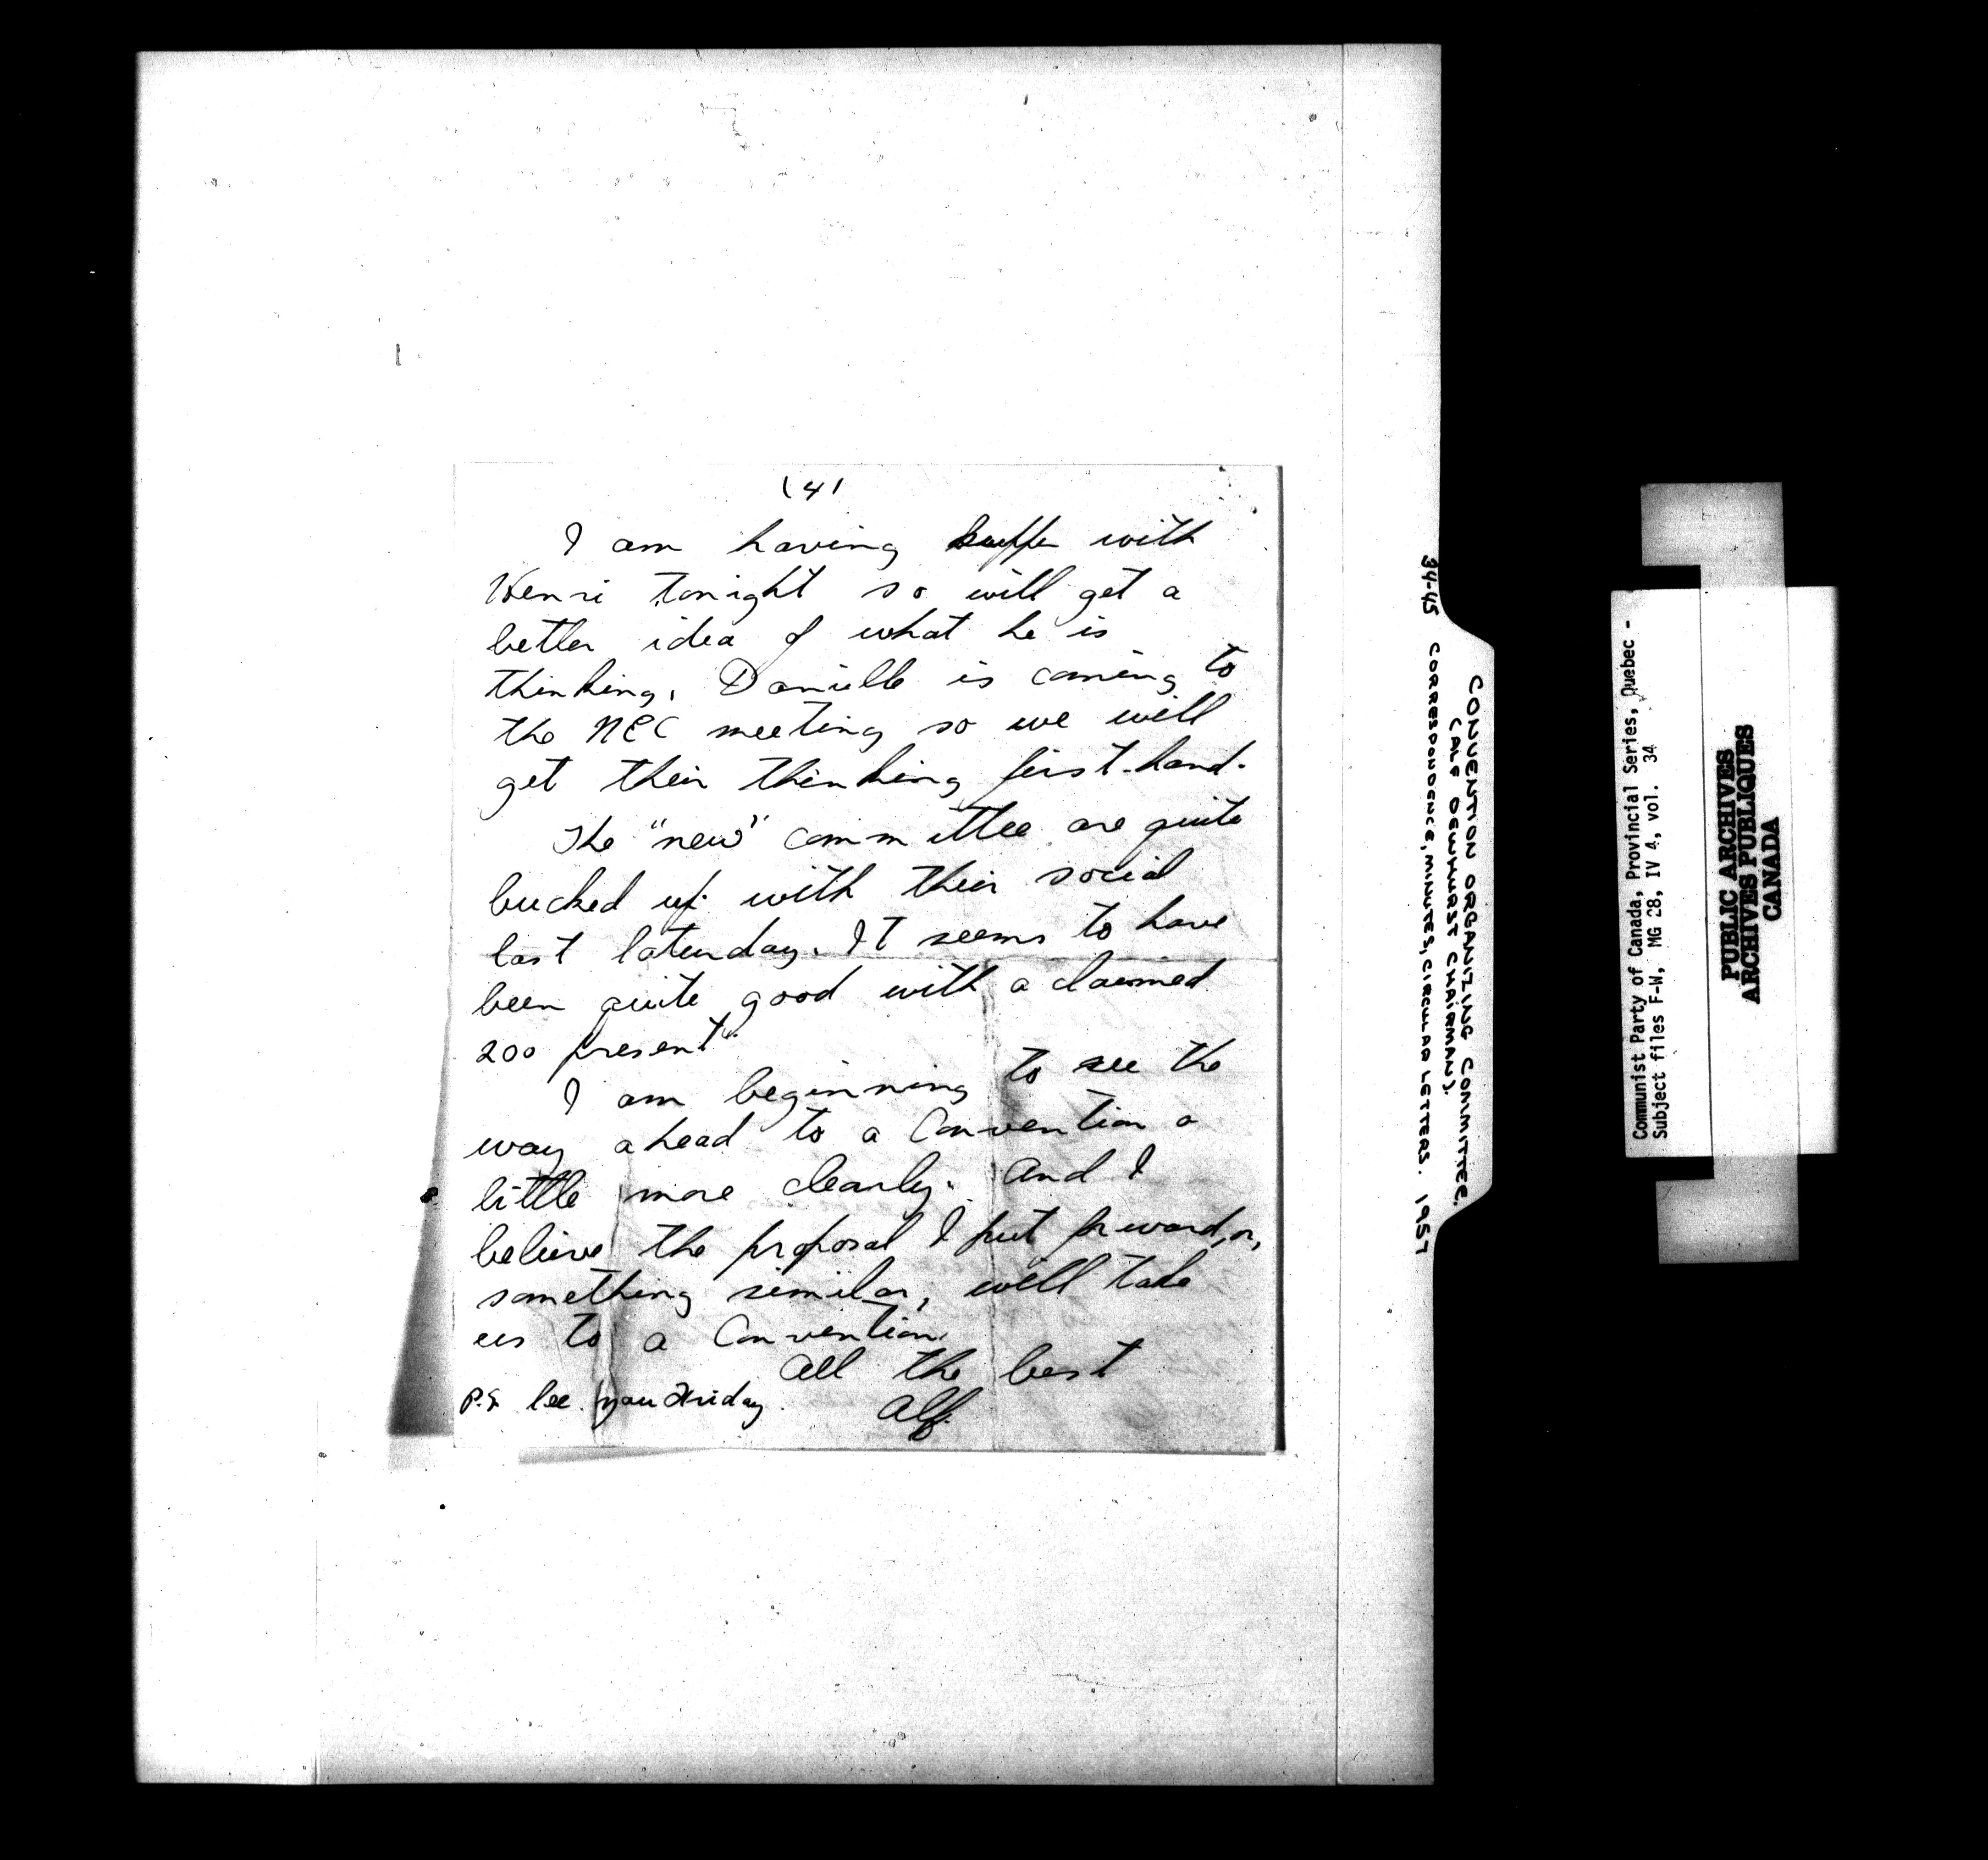 (4)
I am having supper with
Henri tonight so will get a
better idea of what he is
thinking. Danielle is coming to
the NEC meeting so we will
get their thinking first-hand.
The "new" committee are quite
bucked up with their social
last Saturday. It seems to have
been quite good with a claimed
200 present.
I am beginning to see the
way ahead to a Convention a
little more clearly. And I
believe the proposal I put forward, or,
something similar, will take
us to a Convention.
All the best
P.S. See you Friday. Alf.
34-45 CORRESPONDENCE, MINUTES, CIRCULAR LETTERS. 1957
(ALF DEWHURST CHAIRMAN).
CONVENTION ORGANIZING COMMITTEE.
Communist Party of Canada, Provincial Series, Quebec -
Subject files F-W, MG 28, IV 4, vol. 34
PUBLIC ARCHIVES
ARCHIVES PUBLIQUES
CANADA